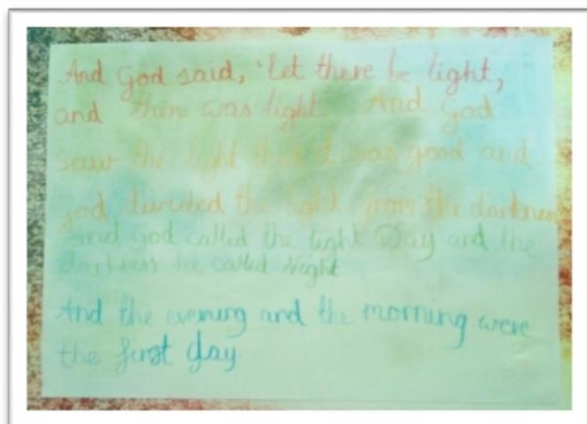 And God said, 'Let there be light,
and there was light. And God
saw the light that it was good and
god divided the light from the darkness
And god called the light Day and the
darkness he called Night
And the evening and the morning were
the first day